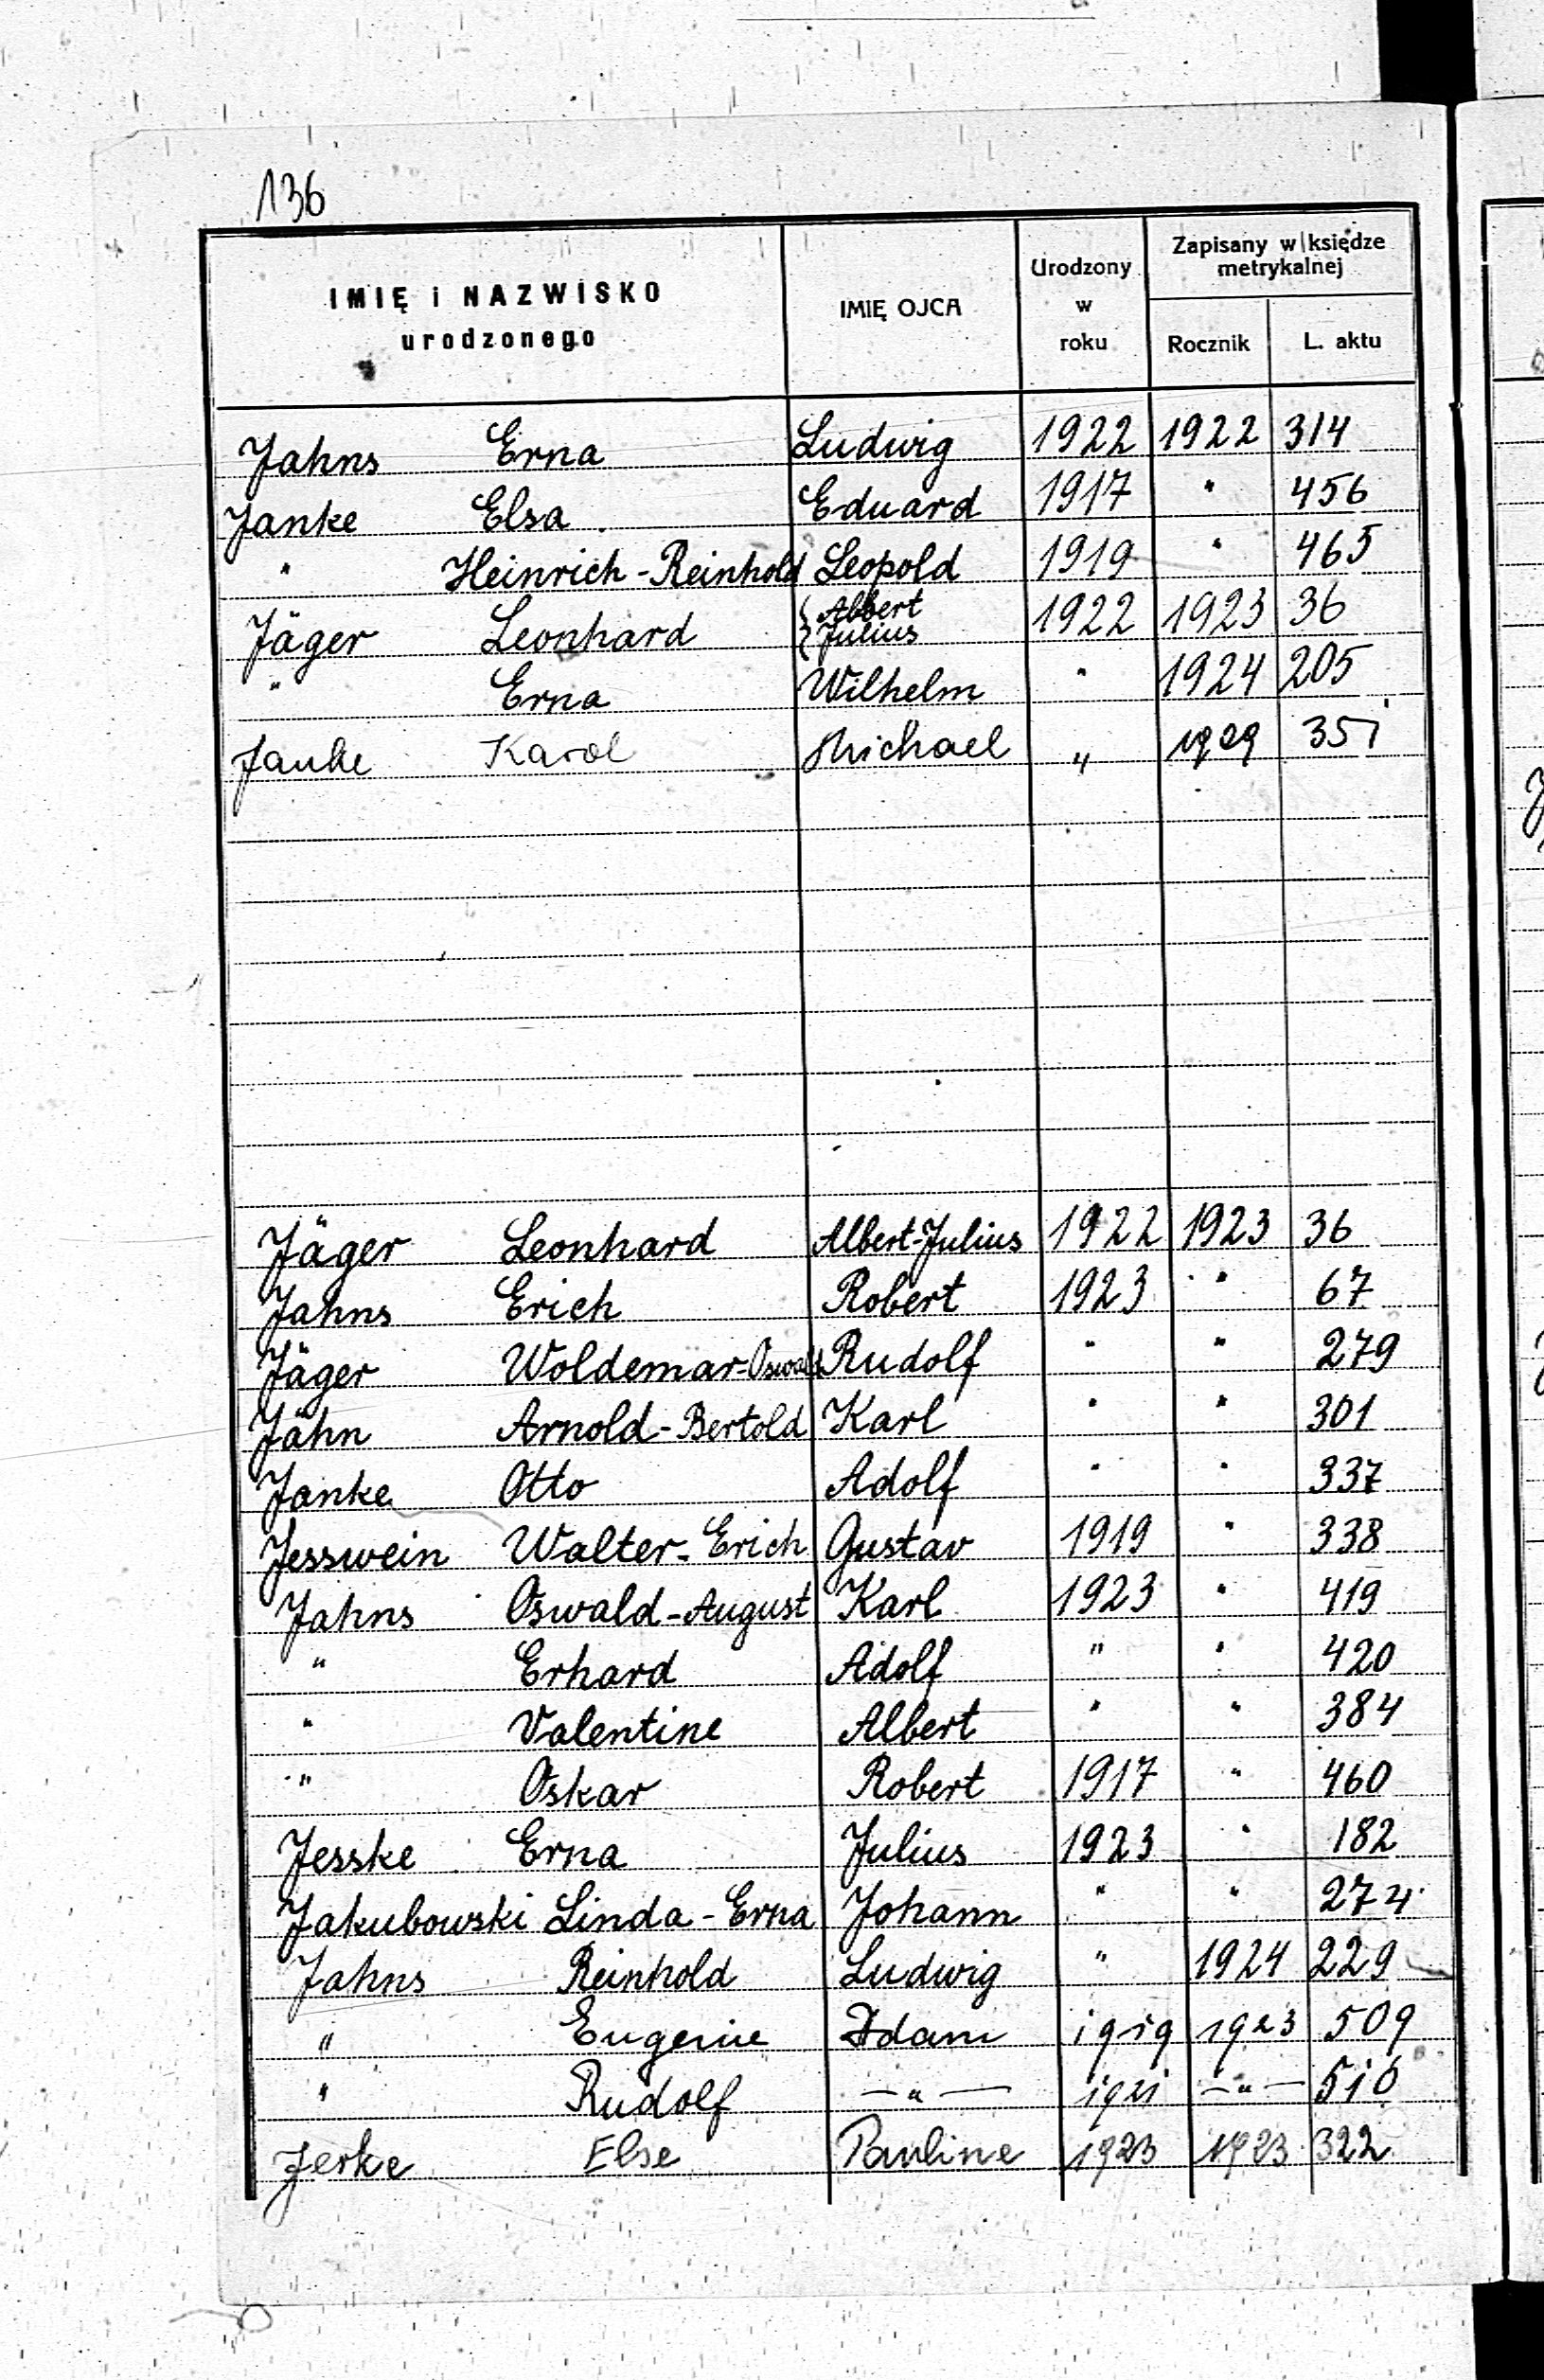 136
IMIĘ i NAZWISKO urodzonego IMIĘ OJCA Urodzony w roku Zapisany w księdze metrykalnej Rocznik L. aktu
Jahns Erna Ludwig 1922 1922 314
Janke Elsa Eduard 1917 " 456
" Heinrich-Reinhold Leopold 1919 " 465
Jäger Leonhard { Albert Julius 1922 1923 36
" Erna Wilhelm " 1924 205
Janke Karol Michael " 1929 351
Jäger Leonhard Albert-Julius 1922 1923 36
Jahns Erich Robert 1923 " 67
Jäger Woldemar-Oswald Rudolf " " 279
Jähn Arnold-Bertold Karl " " 301
Janke Otto Adolf " " 337
Jesswein Walter-Erich Gustav 1919 " 338
Jahns Oswald-August Karl 1923 " 419
" Erhard Adolf " " 420
" Valentine Albert " " 384
" Oskar Robert 1917 " 460
Jesske Erna Julius 1923 " 182
Jakubowski Linda-Erna Johann " " 274
Jahns Reinhold Ludwig " 1924 229
" Eugenie Adam 1919 1923 509
" Rudolf —"— 1921 —"— 510
Jerke Else Pauline 1923 1923 322